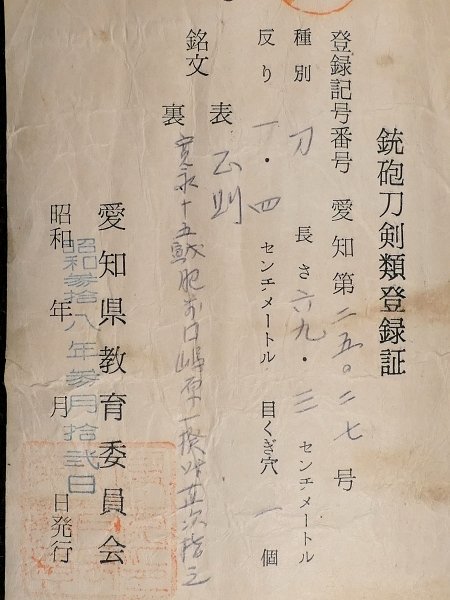 銃砲刀剣類登録証
登録記号番号 愛知第二五〇二七号
種別 刀 長さ六九・三センチメートル
反り 一・四センチメートル 目くぎ穴 一個
銘文 表 正則
裏 寛永十五 肥前口嶋原一揆時 次指之
愛知県教育委員会
昭和 年 月 日発行
昭和参拾八年参月拾弐日